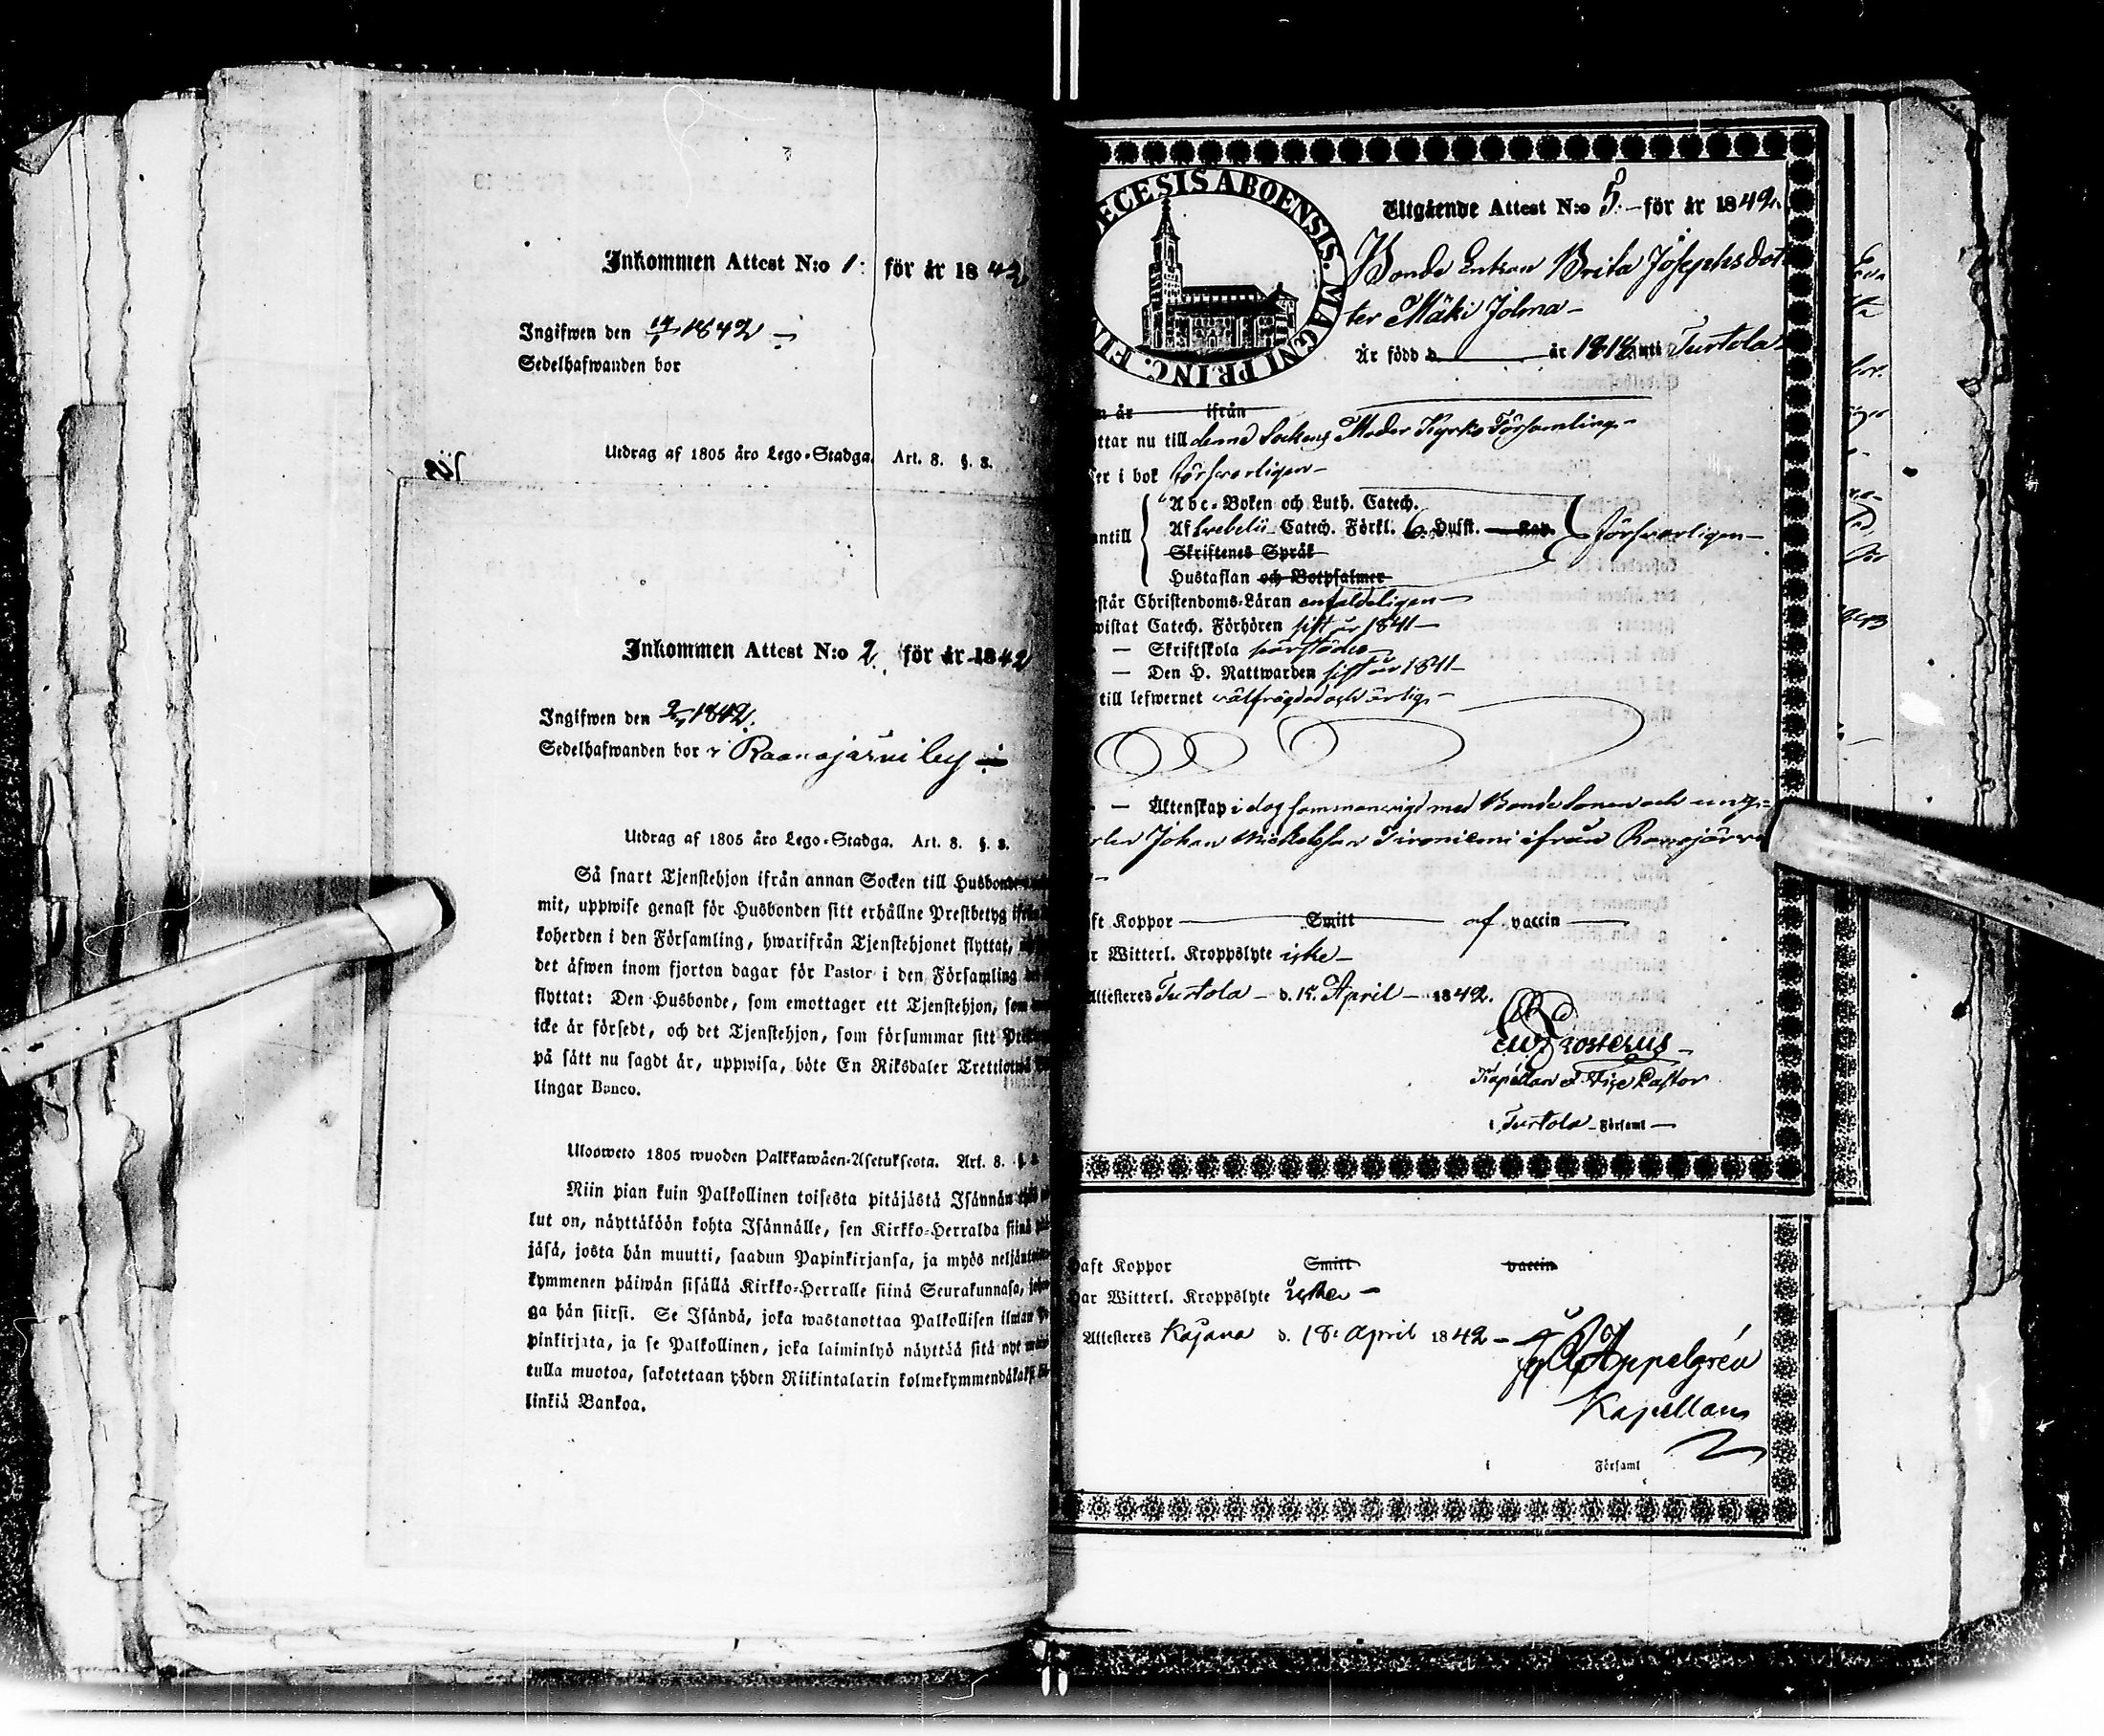 Inkommen Attest N:o 1. för år 1842
Ingifwen den 14/1 1842
Sedelhafwanden bor
Utdrag af 1805 års Lego-Stadga. Art. 8. §. 8.
Inkommen Attest N:o 2. för år 1842
Ingifwen den 1842.
Sedelhafwanden bor i Raanojärvi by
Utdrag af 1805 års Lego-Stadga. Art. 8. §. 8.
Så snart Tjenstehjon ifrån annan Socken till Husbonden
mit, uppwise genast för Husbonden sitt erhållne Prestbetyg
koherden i den Församling, hwarifrån Tjenstehjonet flyttat,
det äfwen inom fjorton dagar för Pastor i den Församling
flyttat: Den Husbonde, som emottager ett Tjenstehjon, som
icke är försedt, och det Tjenstehjon, som försummar sitt
på sätt nu sagdt är, uppwisa, böte En Riksdaler Trettiotwå
lingar Banco.
Ulosweto 1805 wuoden Palkkawäen-Asetuksesta. Art. 8. §.
Niin pian kuin Palkollinen toisesta pitäjästä Isännän
lut on, näyttäköön kohta Isännälle, sen Kirkko-Herralda siinä
jäsä, josta hän muutti, saadun Papinkirjansa, ja myös
kymmenen päiwän sisällä Kirkko-Herralle siinä Seurakunnasa,
ga hän siirsi. Se Isändä, joka wastanottaa Palkollisen ilman
pinkirjata, ja se Palkollinen, joka laiminlyö näyttää sitä nyt
tulla muotoa, sakotetaan yhden Riikintalarin kolmekymmendäkaksi
linkiä Bankoa.
ECESIS ABOENSIS. MAGNI PRINC. FIN
Utgående Attest N:o 5. för år 1842.
Bonde Enkan Brita Josephsdot
ter Mäki Jolma
Är född d. år 1818 uti Turtola
n år ifrån
ttar nu till denna Sockens Moder Kyrko Församling
er i bok försvarligen
Abc-Boken och Luth. Catech.
Af Svebelii Catech. Förkl. 6. Hufst. Kap. försvarligen
Skriftenes Språk
Hustaflan och Botpsalmer
antill
står Christendoms-Läran enfaldeligen
wistat Catech. Förhören sist år 1841
Skriftskola
Den H. Nattwarden sist år 1841
till lefwernet välfrägdad och ärlig
Äktenskap i dag sammanvigd med Bonde Sonen och
Johan Mickelsson ifrån Raanojärvi
ft Koppor Smitt af vaccin
r Witterl. Kroppslyte icke
Attesteres Turtola d. 15. April 1842.
Kapellan o. Vice Pastor
i Turtola Församl
aft Koppor Smitt vaccin
ar Witterl. Kroppslyte icke
Attesteres Kajana d. 18. April 1842
Appelgrén
Kapellan
i Församl